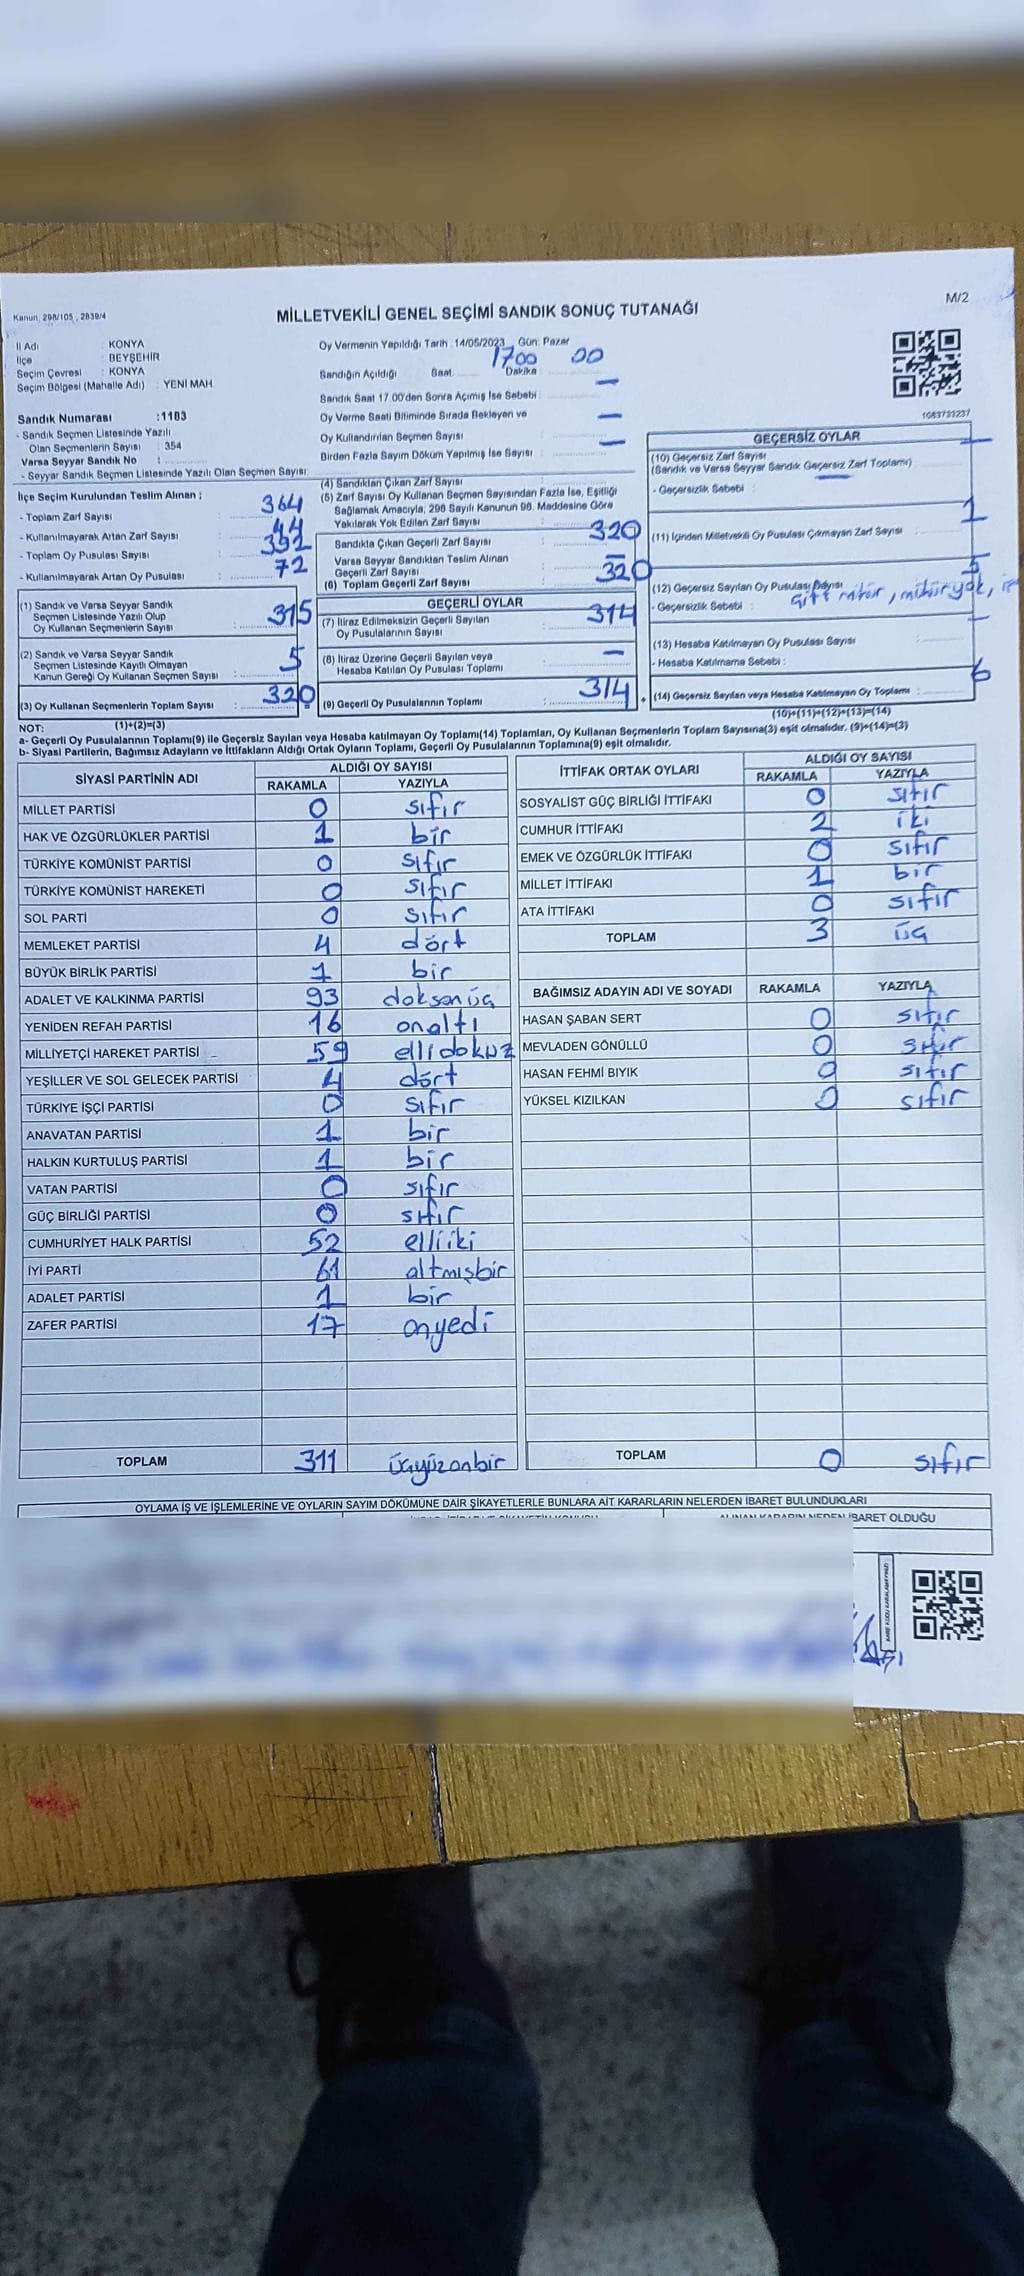 Kanun: 298/105 , 2839/4
MİLLETVEKİLİ GENEL SEÇİMİ SANDIK SONUÇ TUTANAĞI
M/2
İl Adı : KONYA
İlçe : BEYŞEHİR
Seçim Çevresi : KONYA
Seçim Bölgesi (Mahalle Adı) : YENİ MAH
Sandık Numarası : 1183
- Sandık Seçmen Listesinde Yazılı
Olan Seçmenlerin Sayısı : 354
Varsa Seyyar Sandık No :
- Seyyar Sandık Seçmen Listesinde Yazılı Olan Seçmen Sayısı:
Oy Vermenin Yapıldığı Tarih :14/05/2023 Gün: Pazar
Sandığın Açıldığı Saat 1700 Dakika : 00
Sandık Saat 17.00'den Sonra Açımış İse Sebebi : —
Oy Verme Saati Bitiminde Sırada Bekleyen ve
Oy Kullandırılan Seçmen Sayısı : —
Birden Fazla Sayım Döküm Yapılmış İse Sayısı : —
1083733237
İlçe Seçim Kurulundan Teslim Alınan ;
- Toplam Zarf Sayısı : 364
- Kullanılmayarak Artan Zarf Sayısı : 44
- Toplam Oy Pusulası Sayısı : 392
- Kullanılmayarak Artan Oy Pusulası : 72
(1) Sandık ve Varsa Seyyar Sandık
Seçmen Listesinde Yazılı Olup
Oy Kullanan Seçmenlerin Sayısı : 315
(2) Sandık ve Varsa Seyyar Sandık
Seçmen Listesinde Kayıtlı Olmayan
Kanun Gereği Oy Kullanan Seçmen Sayısı : 5
(3) Oy Kullanan Seçmenlerin Toplam Sayısı : 320
(1)+(2)=(3)
(4) Sandıktan Çıkan Zarf Sayısı :
(5) Zarf Sayısı Oy Kullanan Seçmen Sayısından Fazla İse, Eşitliği
Sağlamak Amacıyla, 298 Sayılı Kanunun 98. Maddesine Göre
Yakılarak Yok Edilen Zarf Sayısı :
Sandıkta Çıkan Geçerli Zarf Sayısı : 320
Varsa Seyyar Sandıktan Teslim Alınan
Geçerli Zarf Sayısı : —
(6) Toplam Geçerli Zarf Sayısı : 320
GEÇERLİ OYLAR
(7) İtiraz Edilmeksizin Geçerli Sayılan
Oy Pusulalarının Sayısı : 314
(8) İtiraz Üzerine Geçerli Sayılan veya
Hesaba Katılan Oy Pusulası Toplamı : —
(9) Geçerli Oy Pusulalarının Toplamı : 314
GEÇERSİZ OYLAR
(10) Geçersiz Zarf Sayısı —
(Sandık ve Varsa Seyyar Sandık Geçersiz Zarf Toplamı)
- Geçersizlik Sebebi : —
(11) İçinden Milletvekili Oy Pusulası Çıkmayan Zarf Sayısı 1
(12) Geçersiz Sayılan Oy Pusulası Sayısı 5
- Geçersizlik Sebebi : çift mühür, mühür yok,
(13) Hesaba Katılmayan Oy Pusulası Sayısı : —
- Hesaba Katılmama Sebebi :
(14) Geçersiz Sayılan veya Hesaba Katılmayan Oy Toplamı : 6
(10)+(11)+(12)+(13)=(14)
NOT:
a- Geçerli Oy Pusulalarının Toplamı(9) ile Geçersiz Sayılan veya Hesaba katılmayan Oy Toplamı(14) Toplamları, Oy Kullanan Seçmenlerin Toplam Sayısına(3) eşit olmalıdır. (9)+(14)=(3)
b- Siyasi Partilerin, Bağımsız Adayların ve İttifakların Aldığı Ortak Oyların Toplamı, Geçerli Oy Pusulalarının Toplamına(9) eşit olmalıdır.
SİYASİ PARTİNİN ADI
ALDIĞI OY SAYISI
RAKAMLA YAZIYLA
MİLLET PARTİSİ 0 sıfır
HAK VE ÖZGÜRLÜKLER PARTİSİ 1 bir
TÜRKİYE KOMÜNİST PARTİSİ 0 sıfır
TÜRKİYE KOMÜNİST HAREKETİ 0 sıfır
SOL PARTİ 0 sıfır
MEMLEKET PARTİSİ 4 dört
BÜYÜK BİRLİK PARTİSİ 1 bir
ADALET VE KALKINMA PARTİSİ 93 doksanüç
YENİDEN REFAH PARTİSİ 16 onaltı
MİLLİYETÇİ HAREKET PARTİSİ 59 ellidokuz
YEŞİLLER VE SOL GELECEK PARTİSİ 4 dört
TÜRKİYE İŞÇİ PARTİSİ 0 sıfır
ANAVATAN PARTİSİ 1 bir
HALKIN KURTULUŞ PARTİSİ 1 bir
VATAN PARTİSİ 0 sıfır
GÜÇ BİRLİĞİ PARTİSİ 0 sıfır
CUMHURİYET HALK PARTİSİ 52 elliiki
İYİ PARTİ 61 altmışbir
ADALET PARTİSİ 1 bir
ZAFER PARTİSİ 17 onyedi
TOPLAM 311 üçyüzonbir
İTTİFAK ORTAK OYLARI
ALDIĞI OY SAYISI
RAKAMLA YAZIYLA
SOSYALİST GÜÇ BİRLİĞİ İTTİFAKI 0 sıfır
CUMHUR İTTİFAKI 2 iki
EMEK VE ÖZGÜRLÜK İTTİFAKI 0 sıfır
MİLLET İTTİFAKI 1 bir
ATA İTTİFAKI 0 sıfır
TOPLAM 3 üç
BAĞIMSIZ ADAYIN ADI VE SOYADI RAKAMLA YAZIYLA
HASAN ŞABAN SERT 0 sıfır
MEVLADEN GÖNÜLLÜ 0 sıfır
HASAN FEHMİ BIYIK 0 sıfır
YÜKSEL KIZILKAN 0 sıfır
TOPLAM 0 sıfır
OYLAMA İŞ VE İŞLEMLERİNE VE OYLARIN SAYIM DÖKÜMÜNE DAİR ŞİKAYETLERLE BUNLARA AİT KARARLARIN NELERDEN İBARET BULUNDUKLARI
ALINAN KARARIN NEDEN İBARET OLDUĞU